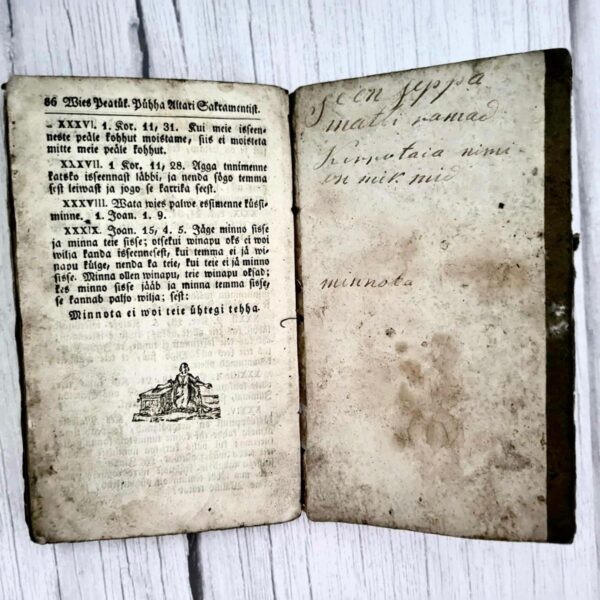 86 Wies Peatük. Pühha Altari Sakramentist.
XXXVI. 1. Kor. 11, 31. Kui meie isseen-
neste peäle kohhut moistame, siis ei moisteta
mitte meie peäle kohhut.
XXXVII. 1 Kor. 11, 28. Agga innimenne
katsko isseennast läbbi, ja nenda sögo temma
sest leiwast ja jogo se karrika seest.
XXXVIII. Wata wies palwe essimenne küssi-
minne. 1. Joan. 1. 9.
XXXIX. Joan. 15, 4. 5. Jäge minno sisse
ja minna teie sisse; otsekui winapu oks ei woi
wilja kanda isseennesest, kui temma ei jä wi-
napu külge, nenda ka teie, kui teie ei jä minno
sisse. Minna ollen winapu, teie winapu oksad;
kes minno sisse jääb ja minna temma sisse,
se kannab paljo wilja; sest:
Minnota ei woi teie ühtegi tehha.
Seen seppa
matti ramad
Kirrotaia nimi
on mik mid
minnota